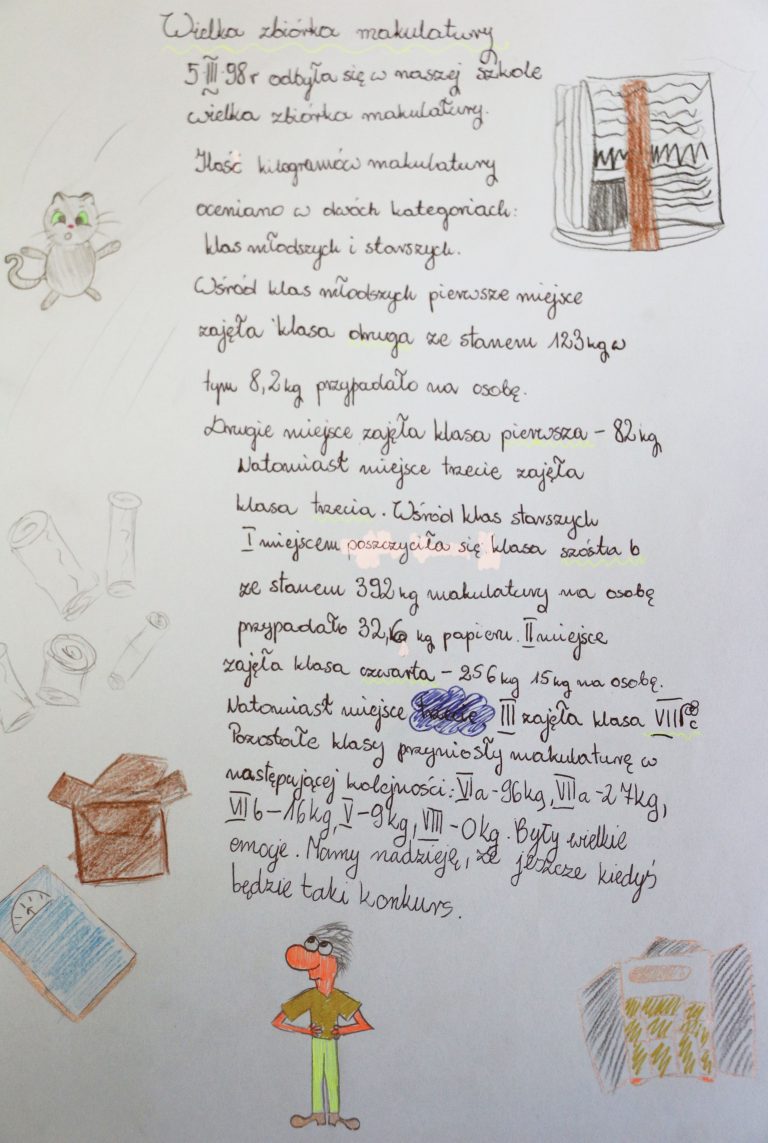 Wielka zbiórka makulatury
5 III 98r odbyła się w naszej szkole
wielka zbiórka makulatury.
Ilość kilogramów makulatury
oceniano w dwóch kategoriach:
klas młodszych i starszych.
Wśród klas młodszych pierwsze miejsce
zajęła klasa druga ze stanem 123kg w
tym 8,2kg przypadało na osobę.
Drugie miejsce zajęła klasa pierwsza - 82kg
Natomiast miejsce trzecie zajęła
klasa trzecia. Wśród klas starszych
I miejscem poszczyciła się klasa szósta b
ze stanem 392kg makulatury na osobę
przypadało 32,6 kg papieru. II miejsce
zajęła klasa czwarta - 256kg 15kg na osobę.
Natomiast miejsce III zajęła klasa VII c
Pozostałe klasy przyniosły makulaturę w
następującej kolejności: VI a - 96kg, VII a - 27kg,
VII b - 16kg, V - 9kg, VIII - 0kg. Były wielkie
emocje. Mamy nadzieję, że jeszcze kiedyś
będzie taki konkurs.